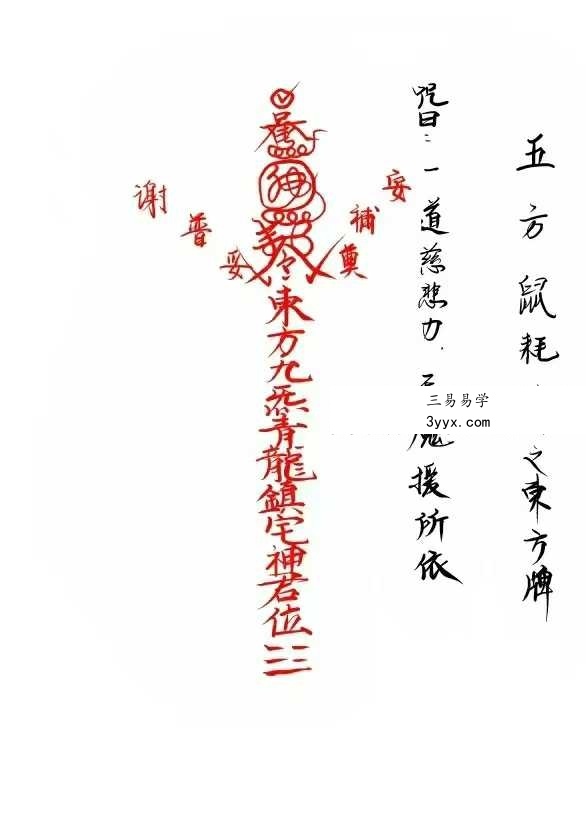 五方鼠耗
之東方牌
咒曰：一道慈悲力．
魔援所依
三易易学
3yyx.com
安補奠
謝普安
東方九炁青龍鎮宅神君位